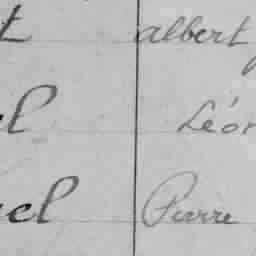 t albert
el Léon
uel Pierre